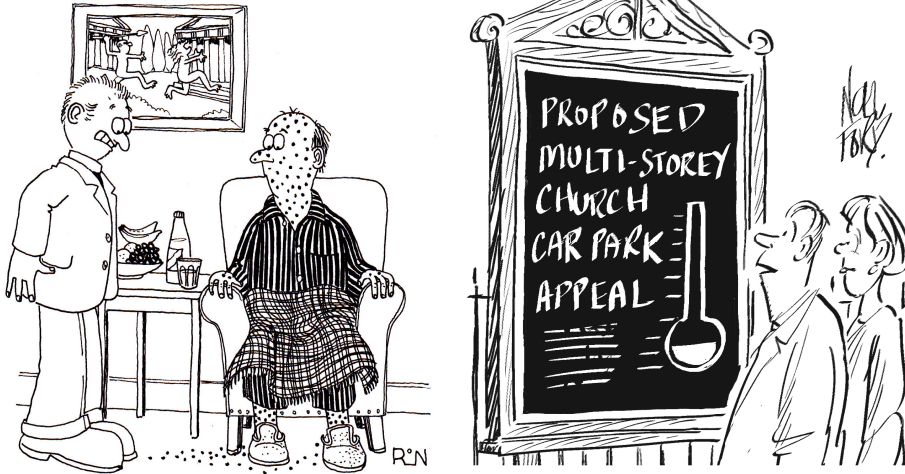 RON
PROPOSED
MULTI-STOREY
CHURCH
CAR PARK
APPEAL
NOEL
FORD.